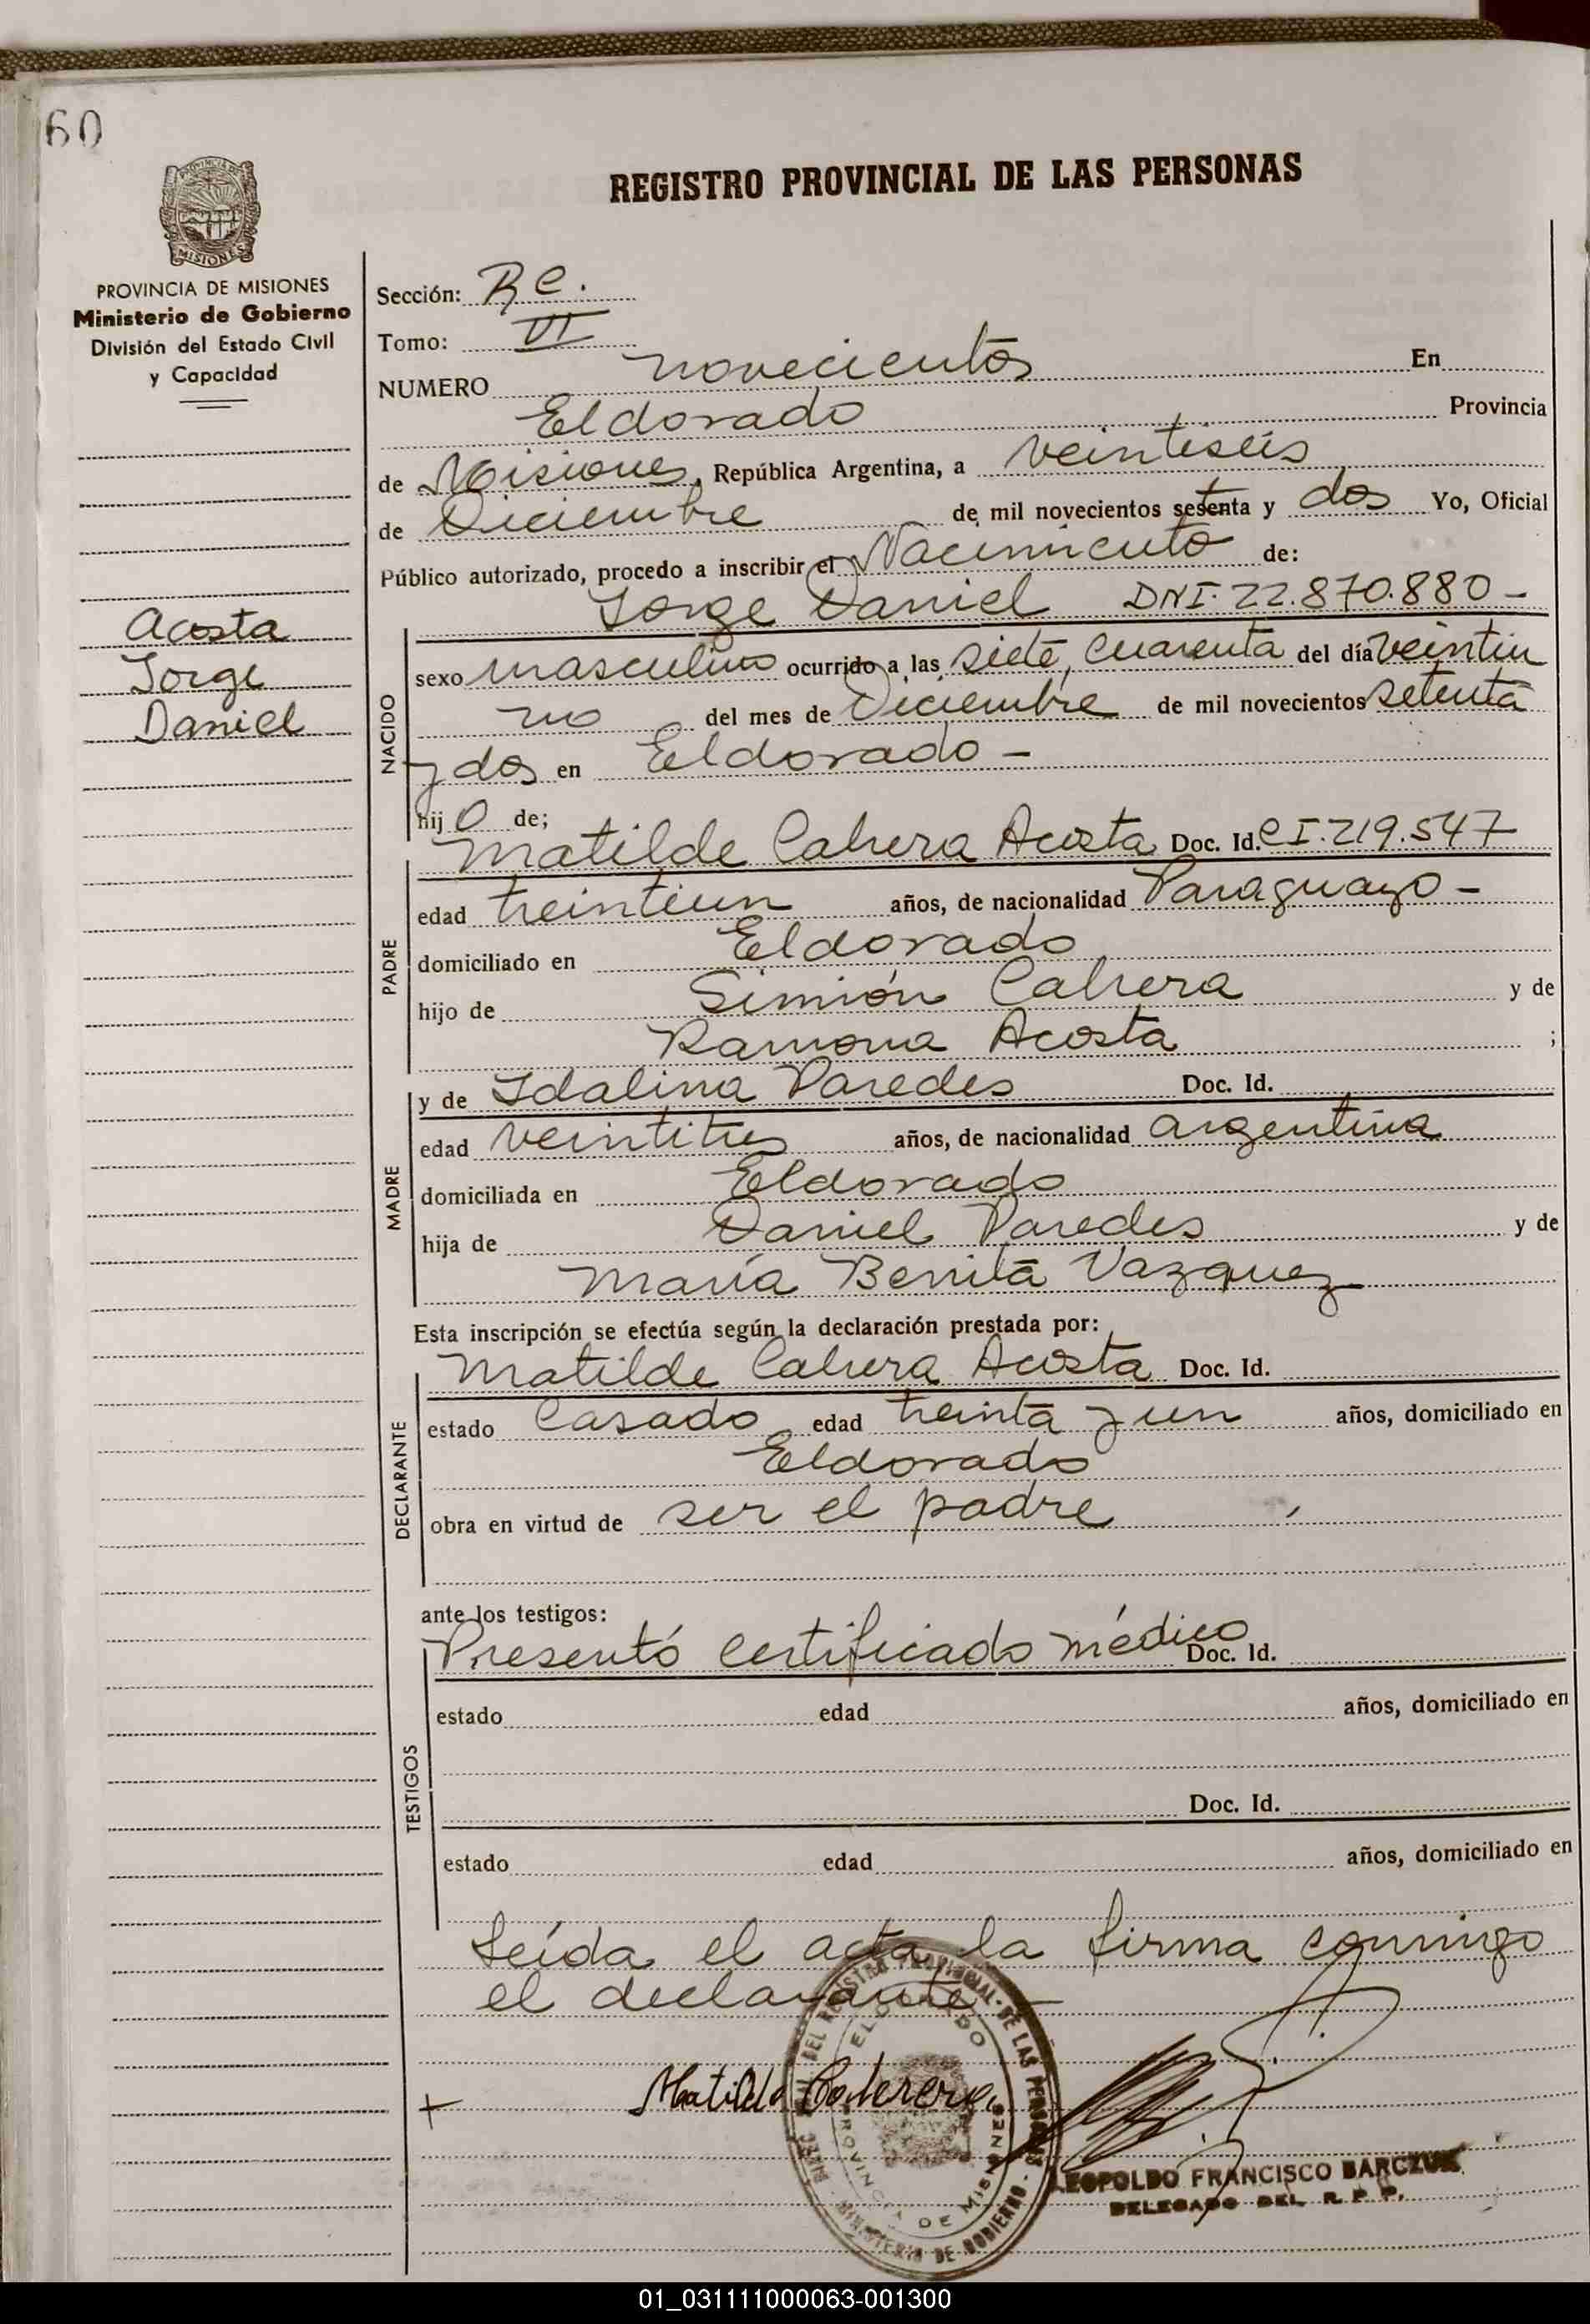 60
PROVINCIA DE MISIONES
MISIONES
PROVINCIA DE MISIONES
Ministerio de Gobierno
División del Estado Civil
y Capacidad
Acosta
Jorge
Daniel
REGISTRO PROVINCIAL DE LAS PERSONAS
Sección: Re.
Tomo: VI
NUMERO novecientos En
Eldorado Provincia
de Misiones, República Argentina, a veintiseis
de Diciembre de mil novecientos sesenta y dos Yo, Oficial
Público autorizado, procedo a inscribir el Nacimiento de:
Jorge Daniel DNI. 22.870.880 -
NACIDO
sexo masculino ocurrido a las siete, cuarenta del día veintiu
no del mes de Diciembre de mil novecientos setenta
y dos en Eldorado -
hijo de;
Matilde Cabrera Acosta Doc. Id. CI. 219.547
PADRE
edad treintiun años, de nacionalidad Paraguayo -
domiciliado en Eldorado
hijo de Simión Cabrera y de
Ramona Acosta ;
y de Idalina Paredes Doc. Id.
MADRE
edad veintitres años, de nacionalidad argentina
domiciliada en Eldorado
hija de Daniel Paredes y de
María Benita Vazquez
Esta inscripción se efectúa según la declaración prestada por:
Matilde Cabrera Acosta Doc. Id.
DECLARANTE
estado Casado edad treinta y un años, domiciliado en
Eldorado
obra en virtud de ser el padre
ante los testigos:
Presentó certificado médico Doc. Id.
TESTIGOS
estado edad años, domiciliado en
Doc. Id.
estado edad años, domiciliado en
Leída el acta la firma conmigo
el declarante -
Matilde Cabrera
DEL REGISTRO PROVINCIAL DE LAS PERSONAS
ELDORADO
PROVINCIA DE MISIONES
MINISTERIO DE GOBIERNO
LEOPOLDO FRANCISCO BARCZUK
DELEGADO DEL R. P. P.
01_031111000063-001300